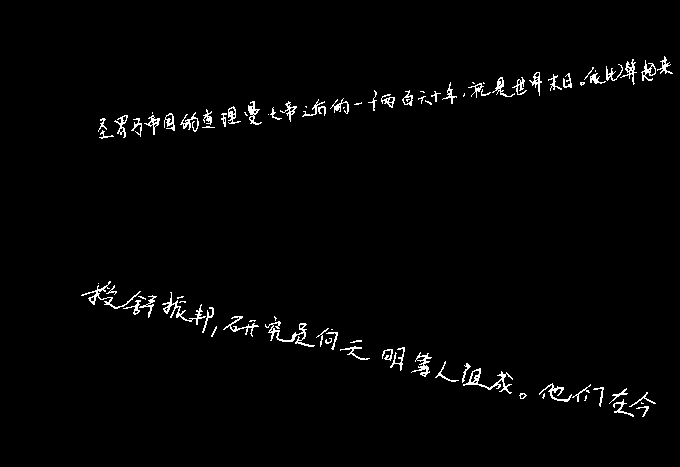 圣罗马帝国的查理曼大帝之后的一千两百六十年，就是世界末日。依此算起来
授舒振邦，研究员何天明等人组成。他们在今